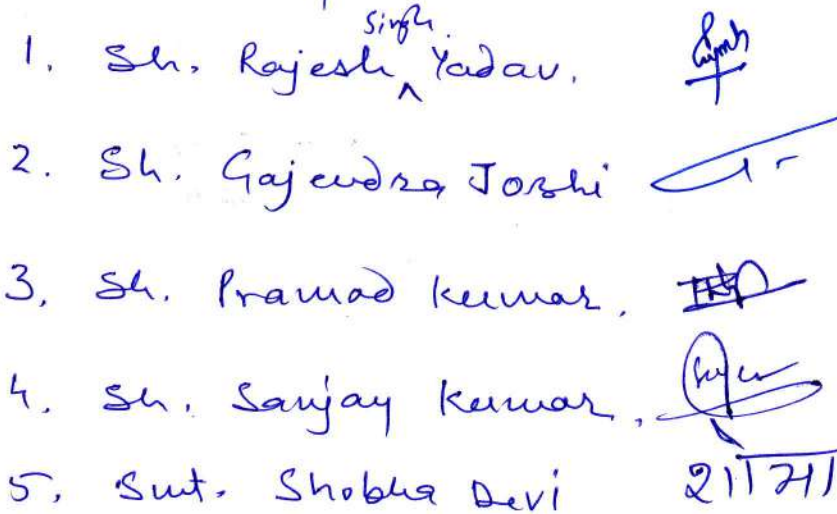 1. Sh. Rajesh Singh Yadav.
2. Sh. Gajendra Joshi
3. Sh. Pramod Kumar.
4. Sh. Sanjay Kumar.
5. Smt. Shobha Devi शोभा